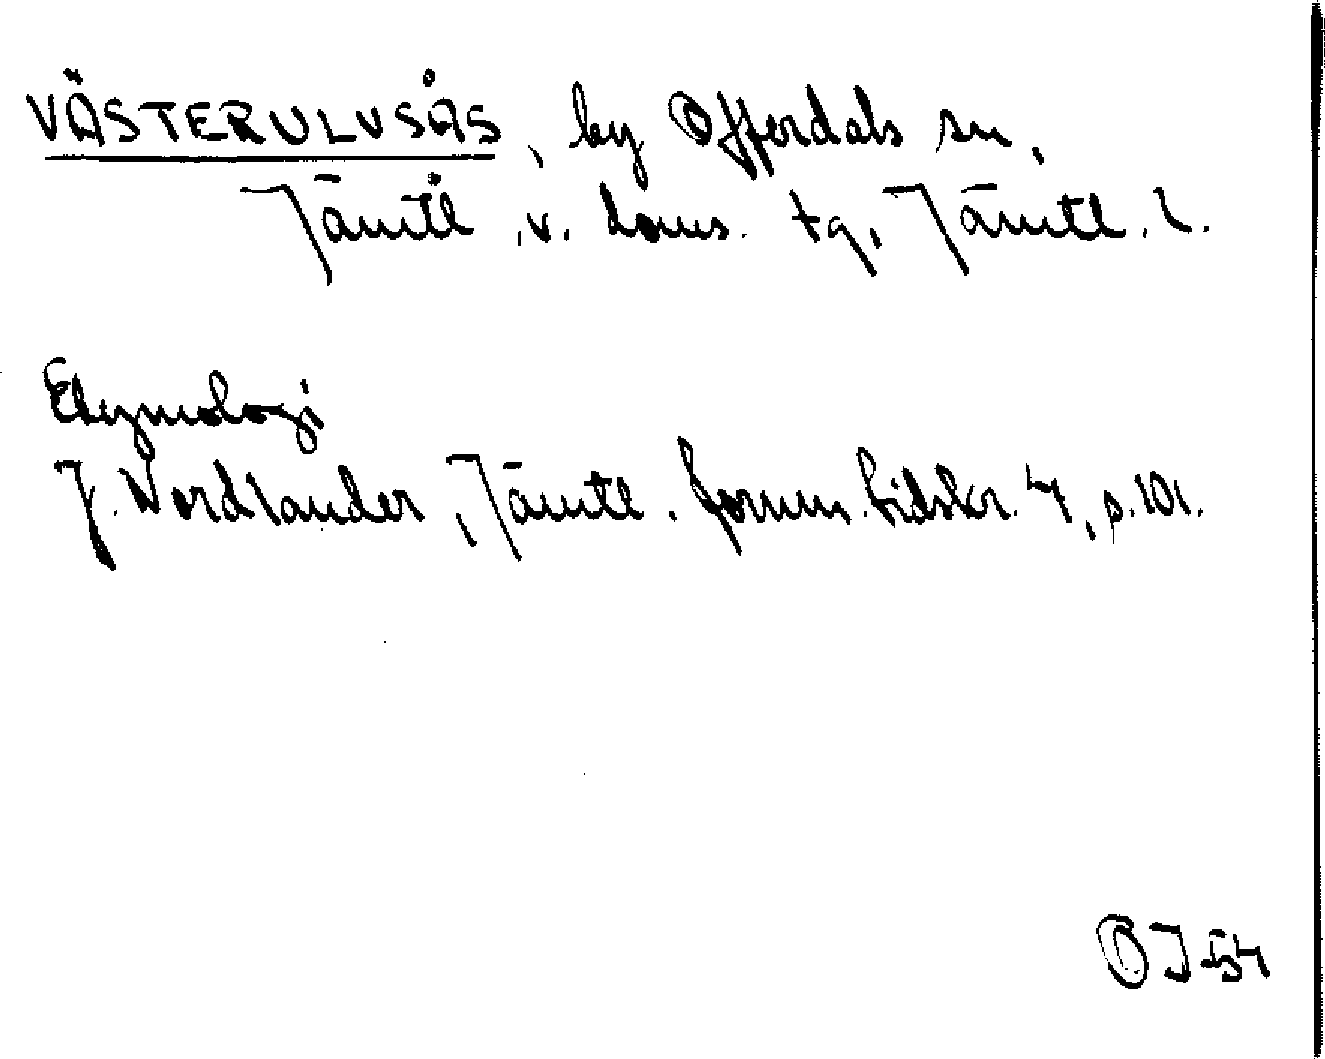 VÄSTERULVSÅS, by Offerdals sn,
Jämtl, v. doms. tg, Jämtl. l.
Etymologi
J. Nordlander, Jämtl. fornm. tidskr. 4, s. 101.
OJ 54